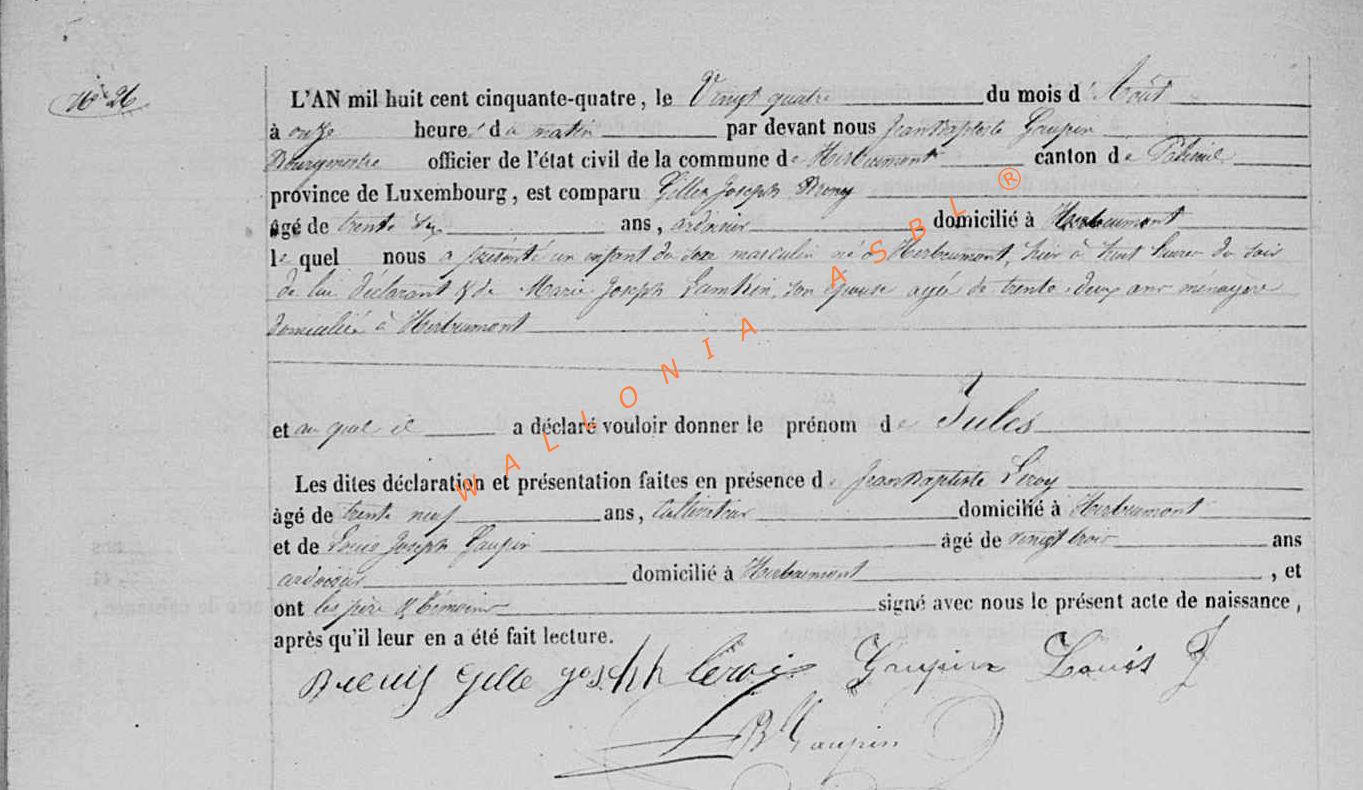 N° 26
L'AN mil huit cent cinquante-quatre, le Vingt quatre du mois d'Août
à onze heures du matin par devant nous Jean Baptiste Gaupin
Bourgmestre officier de l'état civil de la commune de Herbeumont canton de Paliseul
province de Luxembourg, est comparu Gille Joseph
âgé de trente ans, ardoisier domicilié à Herbeumont
lequel nous a présenté un enfant du sexe masculin né à Herbeumont, hier à huit heures du soir
de lui déclarant & de Marie Joseph son épouse agée de trente deux ans ménagère
domiciliée à Herbeumont
et auquel il a déclaré vouloir donner le prénom de Jules
Les dites déclaration et présentation faites en présence de Jean Baptiste Leroy
âgé de trente neuf ans, Cultivateur domicilié à Herbeumont
et de Louis Joseph Gaupin âgé de vingt trois ans
ardoisier domicilié à Herbeumont, et
ont les père & témoins signé avec nous le présent acte de naissance,
après qu'il leur en a été fait lecture.
Gille Joseph Leroi Gaupin Louis J
JB Gaupin
WALLONIA ASBL ®